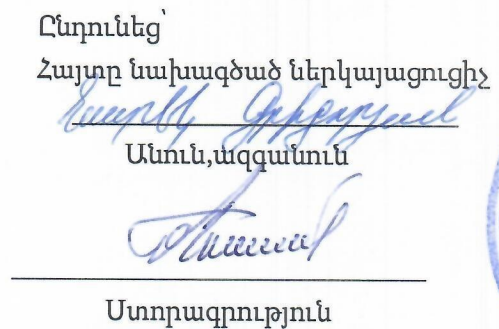 Ընդունեց՝
Հայտը նախագծած ներկայացուցիչ
Նարեկ Գրիգորյան
Անուն,ազգանուն
Ստորագրություն